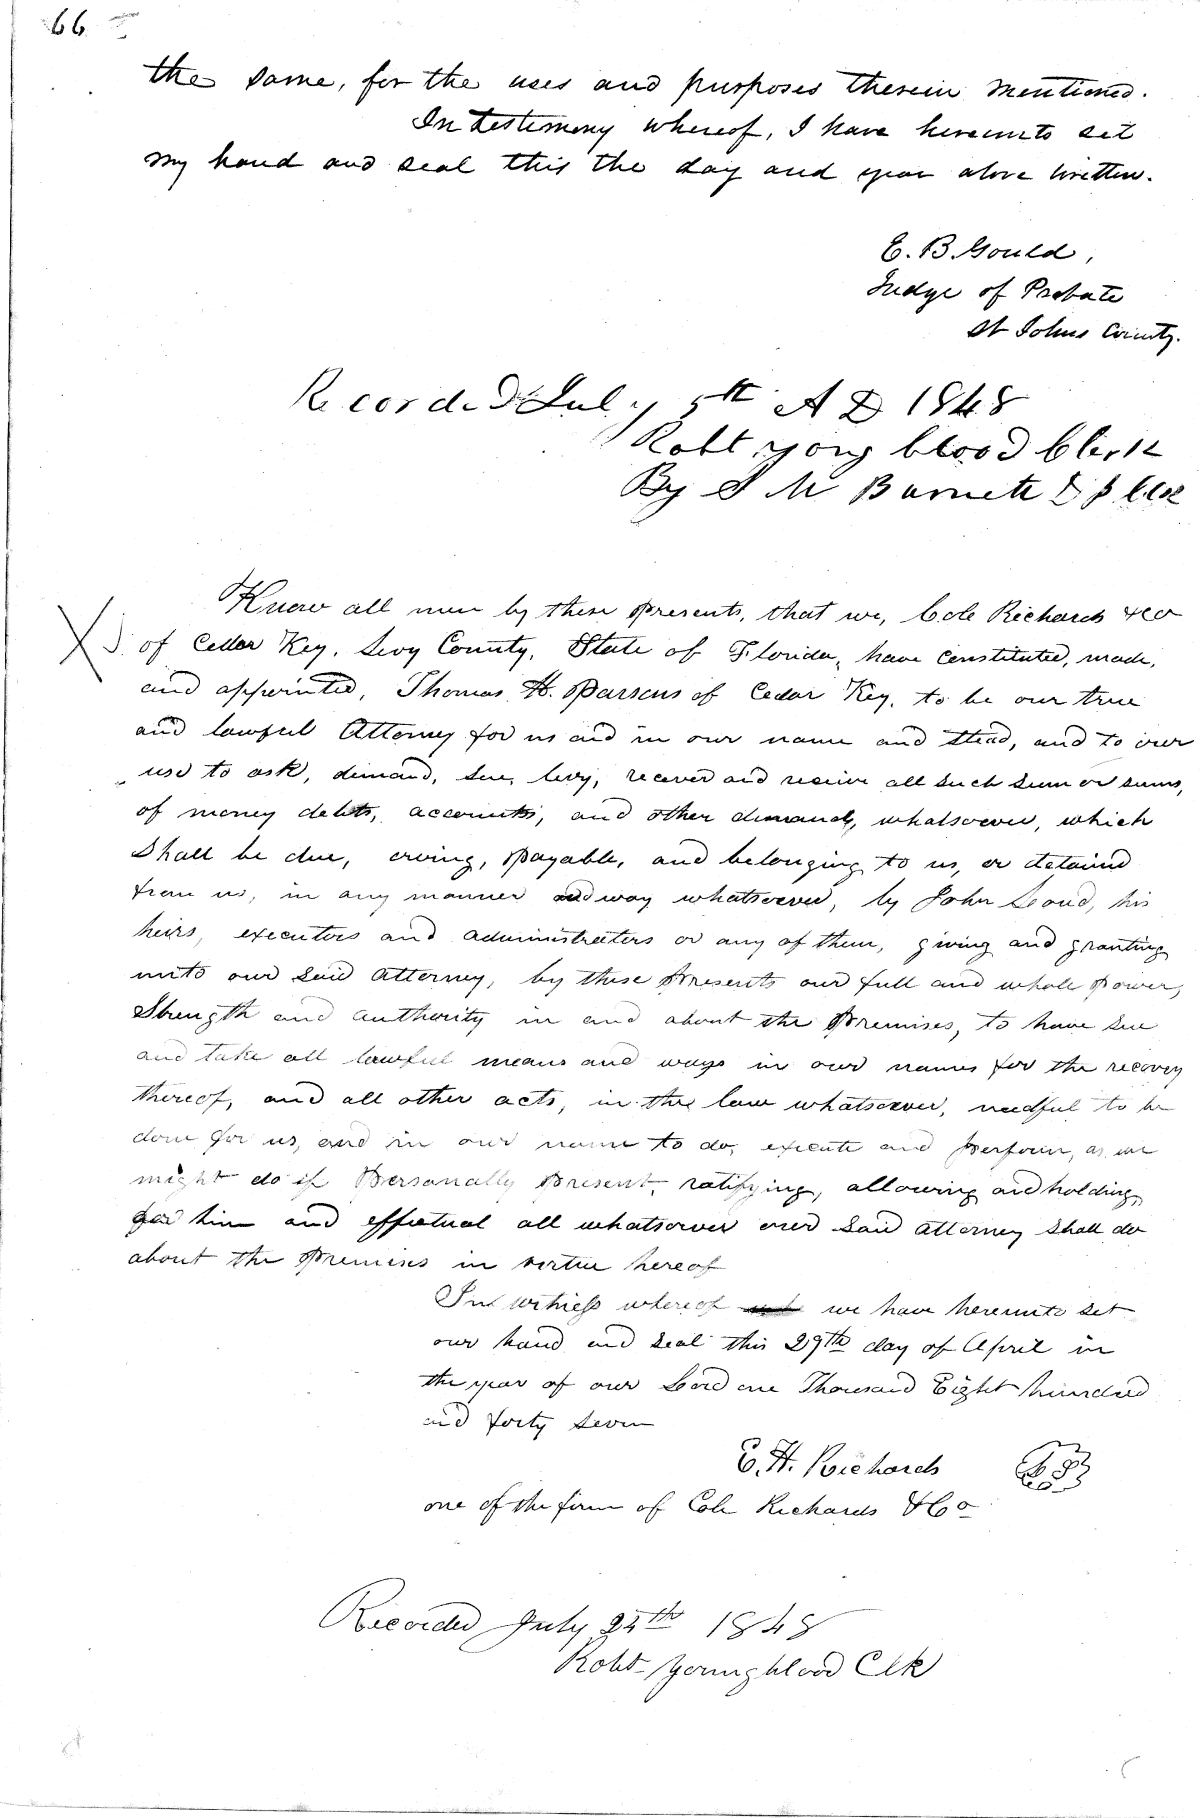 66
the same, for the uses and purposes therein mentioned.
In testimony whereof, I have hereunto set
my hand and seal this the day and year above written.
E. B. Gould,
Judge of Probate
St Johns County.
Recorded July 5th A D 1848
Robt yong blood Clerk
By S M Barnett D p Clk
Know all men by these presents, that we, Cole Richards & Co
of Cedar Key, Levy County, State of Florida, have constituted, made,
and appointed, Thomas H. Parsons of Cedar Key, to be our true
and lawful Attorney for us and in our name and stead, and to our
use to ask, demand, sue, levy, recover and receive all such sum or sums,
of money debts, accounts, and other demands, whatsoever, which
Shall be due, owing, payable, and belonging to us, or detained
from us, in any manner and way whatsoever, by John Loud, his
heirs, executors and administrators or any of them, giving and granting
unto our said Attorney, by these Presents our full and whole power,
Strength and authority in and about the Premises, to have sue
and take all lawful means and ways in our names for the recovery
thereof, and all other acts, in the law whatsoever, needful to be
done for us, and in our name to do, execute and perform, as we
might do if Personally present, ratifying, allowing and holding
for him and effectual all whatsoever our said attorney shall do
about the Premises in virtue hereof
In witness whereof we have hereunto set
our hand and seal this 29th day of April in
the year of our Lord one Thousand Eight hundred
and forty seven
E. H. Richards
one of the firm of Cole Richards & Co
Recorded July 25th 1848
Robt Youngblood Clk